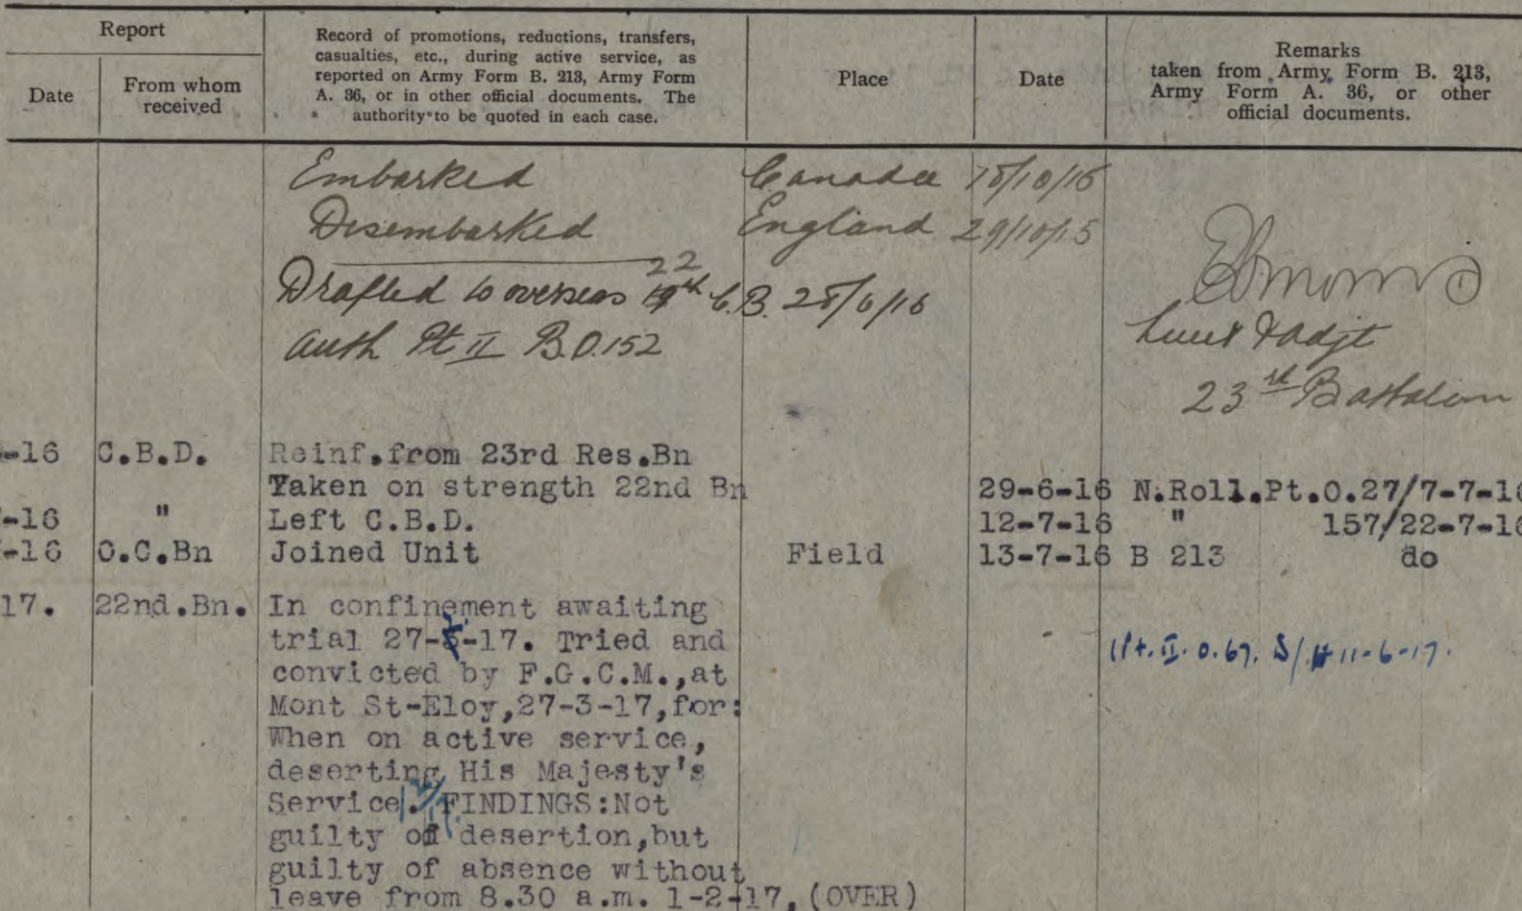 Report
Date
From whom
received
Record of promotions, reductions, transfers,
casualties, etc., during active service, as
reported on Army Form B. 213, Army Form
A. 36, or in other official documents. The
authority to be quoted in each case.
Place
Date
Remarks
taken from Army Form B. 213,
Army Form A. 36, or other
official documents.
Embarked Canada 18/10/15
Disembarked England 29/10/15
22
Drafted to overseas 19th C.B. 28/6/16
auth Pt II B.O.152
Lieut & Adjt
23rd Battalion
-16 C.B.D. Reinf.from 23rd Res.Bn
Taken on strength 22nd Bn 29-6-16 N.Roll.Pt.O.27/7-7-16
-16 " Left C.B.D. 12-7-16 " 157/22-7-16
-16 O.C.Bn Joined Unit Field 13-7-16 B 213 do
17. 22nd.Bn. In confinement awaiting
trial 27- -17. Tried and
convicted by F.G.C.M.,at Pt. II. O. 67. 11-6-17.
Mont St-Eloy,27-3-17,for:
When on active service,
deserting His Majesty's
Service. FINDINGS:Not
guilty of desertion,but
guilty of absence without
leave from 8.30 a.m. 1-2-17,(OVER)